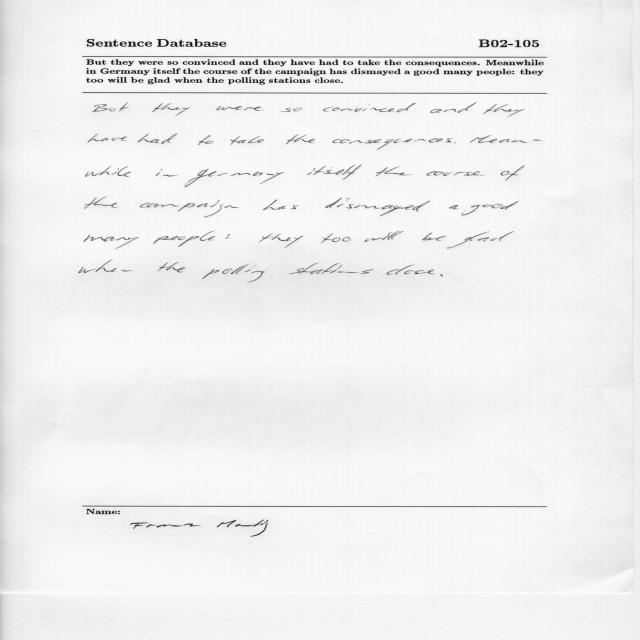 Sentence Database B02-105
But they were so convinced and they have had to take the consequences. Meanwhile
in Germany itself the course of the campaign has dismayed a good many people: they
too will be glad when the polling stations close.
But they were so convinced and they
have had to take the consequences. Mean-
while in Germany itself the course of
the campaign has dismayed a good
many people: they too will be glad
when the polling stations close.
Name: